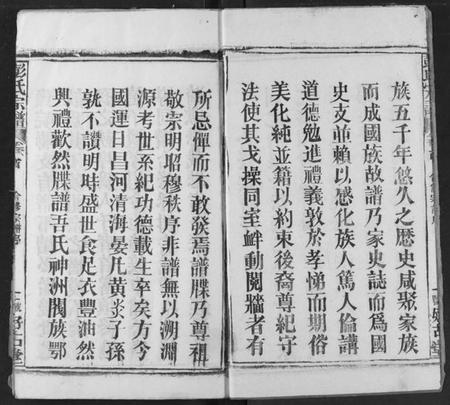 族五千年悠久之歷史咸聚家族
而成國族故譜乃家史誌而爲國
史支並賴以感化族人篤人倫講
道德勉進禮義敦於孝悌而期俗
美化純並籍以約束後裔尊紀守
法使其戈操同室衅動鬩牆者有
所忌憚而不敢發焉譜牒乃尊祖
敬宗明昭穆秩序非譜無以溯淵
源考世系紀功德載生卒矣方今
國運日昌河清海晏凡黃炎子孫
孰不讚明時盛世食足衣豐油然
興禮歡然牒譜吾氏神洲閥族鄂
彭氏宗譜 卷首